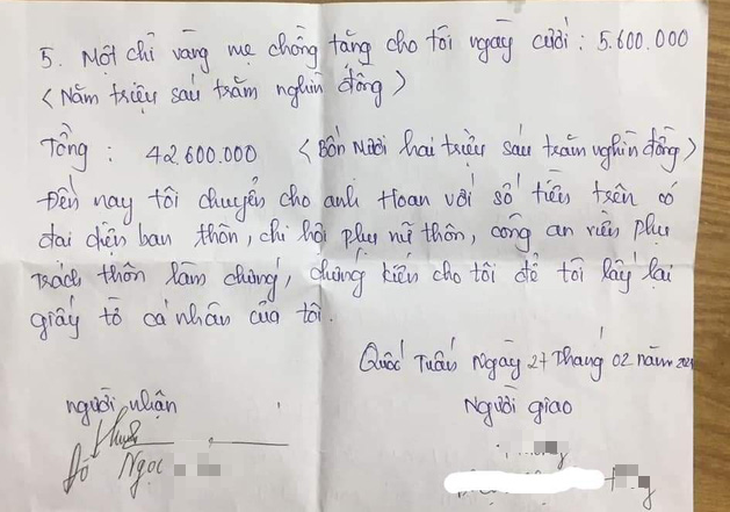 5. Một chỉ vàng mẹ chồng tặng cho tôi ngày cưới: 5.600.000
<Năm triệu sáu trăm nghìn đồng>
Tổng : 42.600.000 <Bốn Mươi hai triệu sáu trăm nghìn đồng>
Đến nay tôi chuyển cho anh Hoan với số tiền trên có
đại diện ban thôn, chi hội phụ nữ thôn, công an viên phụ
trách thôn làm chứng, chứng kiến cho tôi để tôi lấy lại
giấy tờ cá nhân của tôi.
Quốc Tuấn Ngày 27 Tháng 02 năm
người nhận
Người giao
Đỗ
Ngọc